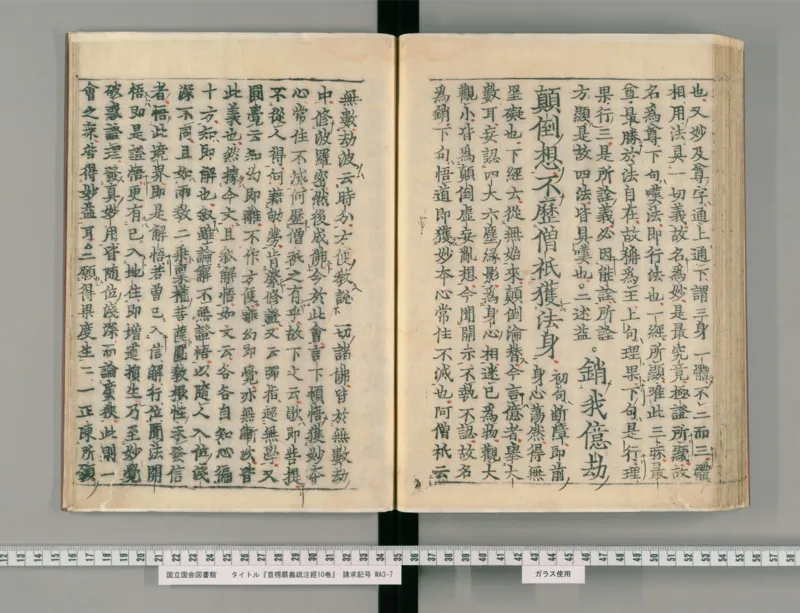 也又妙及尊字通上通下謂三身一體不二而三體
相用法具一切義故名為妙是最究竟極證所顯故
名為尊下句嘆法即行法也一經所顯唯此三昧最
尊最勝於法自在故稱為王上句理果下句是行理
果行三是所詮義必因能詮所詮
方顯是故四法皆具嘆也二述益 銷我億劫
顛倒想不歷僧祇獲法身 初句斷障即前
身心蕩然得無
罣礙也下經云從無始來顛倒淪替今言億者舉大
數耳妄認四大六塵緣影為身心相迷已為物觀大
觀小皆為顛倒虛妄亂想今聞開示不執不認故名
為銷下句悟道即獲妙本心常住不滅也阿僧祇云
無數劫波云時分方便教說一切諸佛皆於無數劫
中修波羅密然後成佛今於此會言下頓悟獲妙本
心常住不滅何歷僧祇之有乎故下文云歇即菩提
不從人得何藉劬勞肯綮修證又云彈指超無學又
圓覺云知幻即離不作方便離幻即覺亦無漸次皆
此義也然據今文且敘解悟如文云各各自知心徧
十方知即解也敘雖論解不無證悟以隨人入位淺
深不同且如雨教二乘
者悟此境界即是解悟若曾已入信解行位聞法開
悟即是證悟更有已入地住即增道損生乃至妙覺
破惑證理
會之來皆得妙益耳二願得果度生二一正陳所願
国立国会図書館 タイトル『首楞嚴義疏注經10巻』 請求記号 WA3-7
ガラス使用